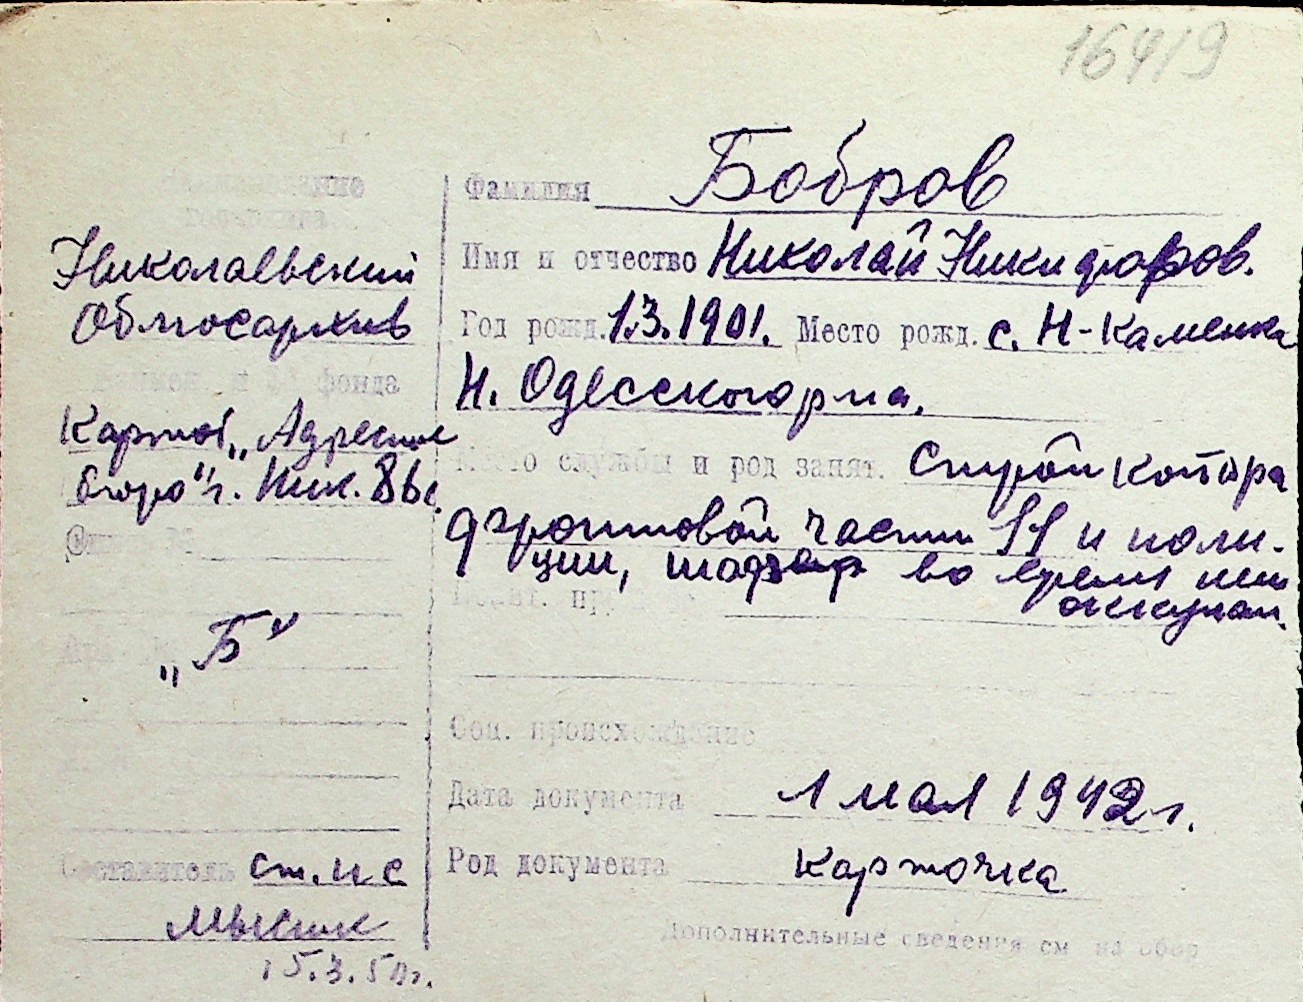 16419
Наименование
госархива
Николаевский
Облгосархив
фонда
Картот. "Адресное
бюро" г. Ник. 86с.
Опись №
"Б"
Составитель ст. н с
Мысик
15.3.50г.
Фамилия Бобров
Имя и отчество Николай Никифоров.
Год рожд. 1.3.1901. Место рожд. с. Н-Каменка
Н. Одесского р-на.
Место службы и род занят. строй контора
фронтовой части 11 и поли-
ции, во время нем
оккупац.
Соц. происхождение
Дата документа 1 мая 1942г.
Род документа карточка
Дополнительные сведения см на обор